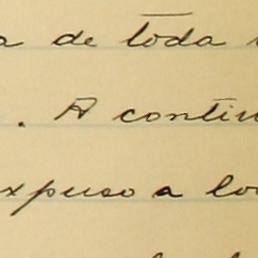 a de toda
. A contin
xpuso a lo